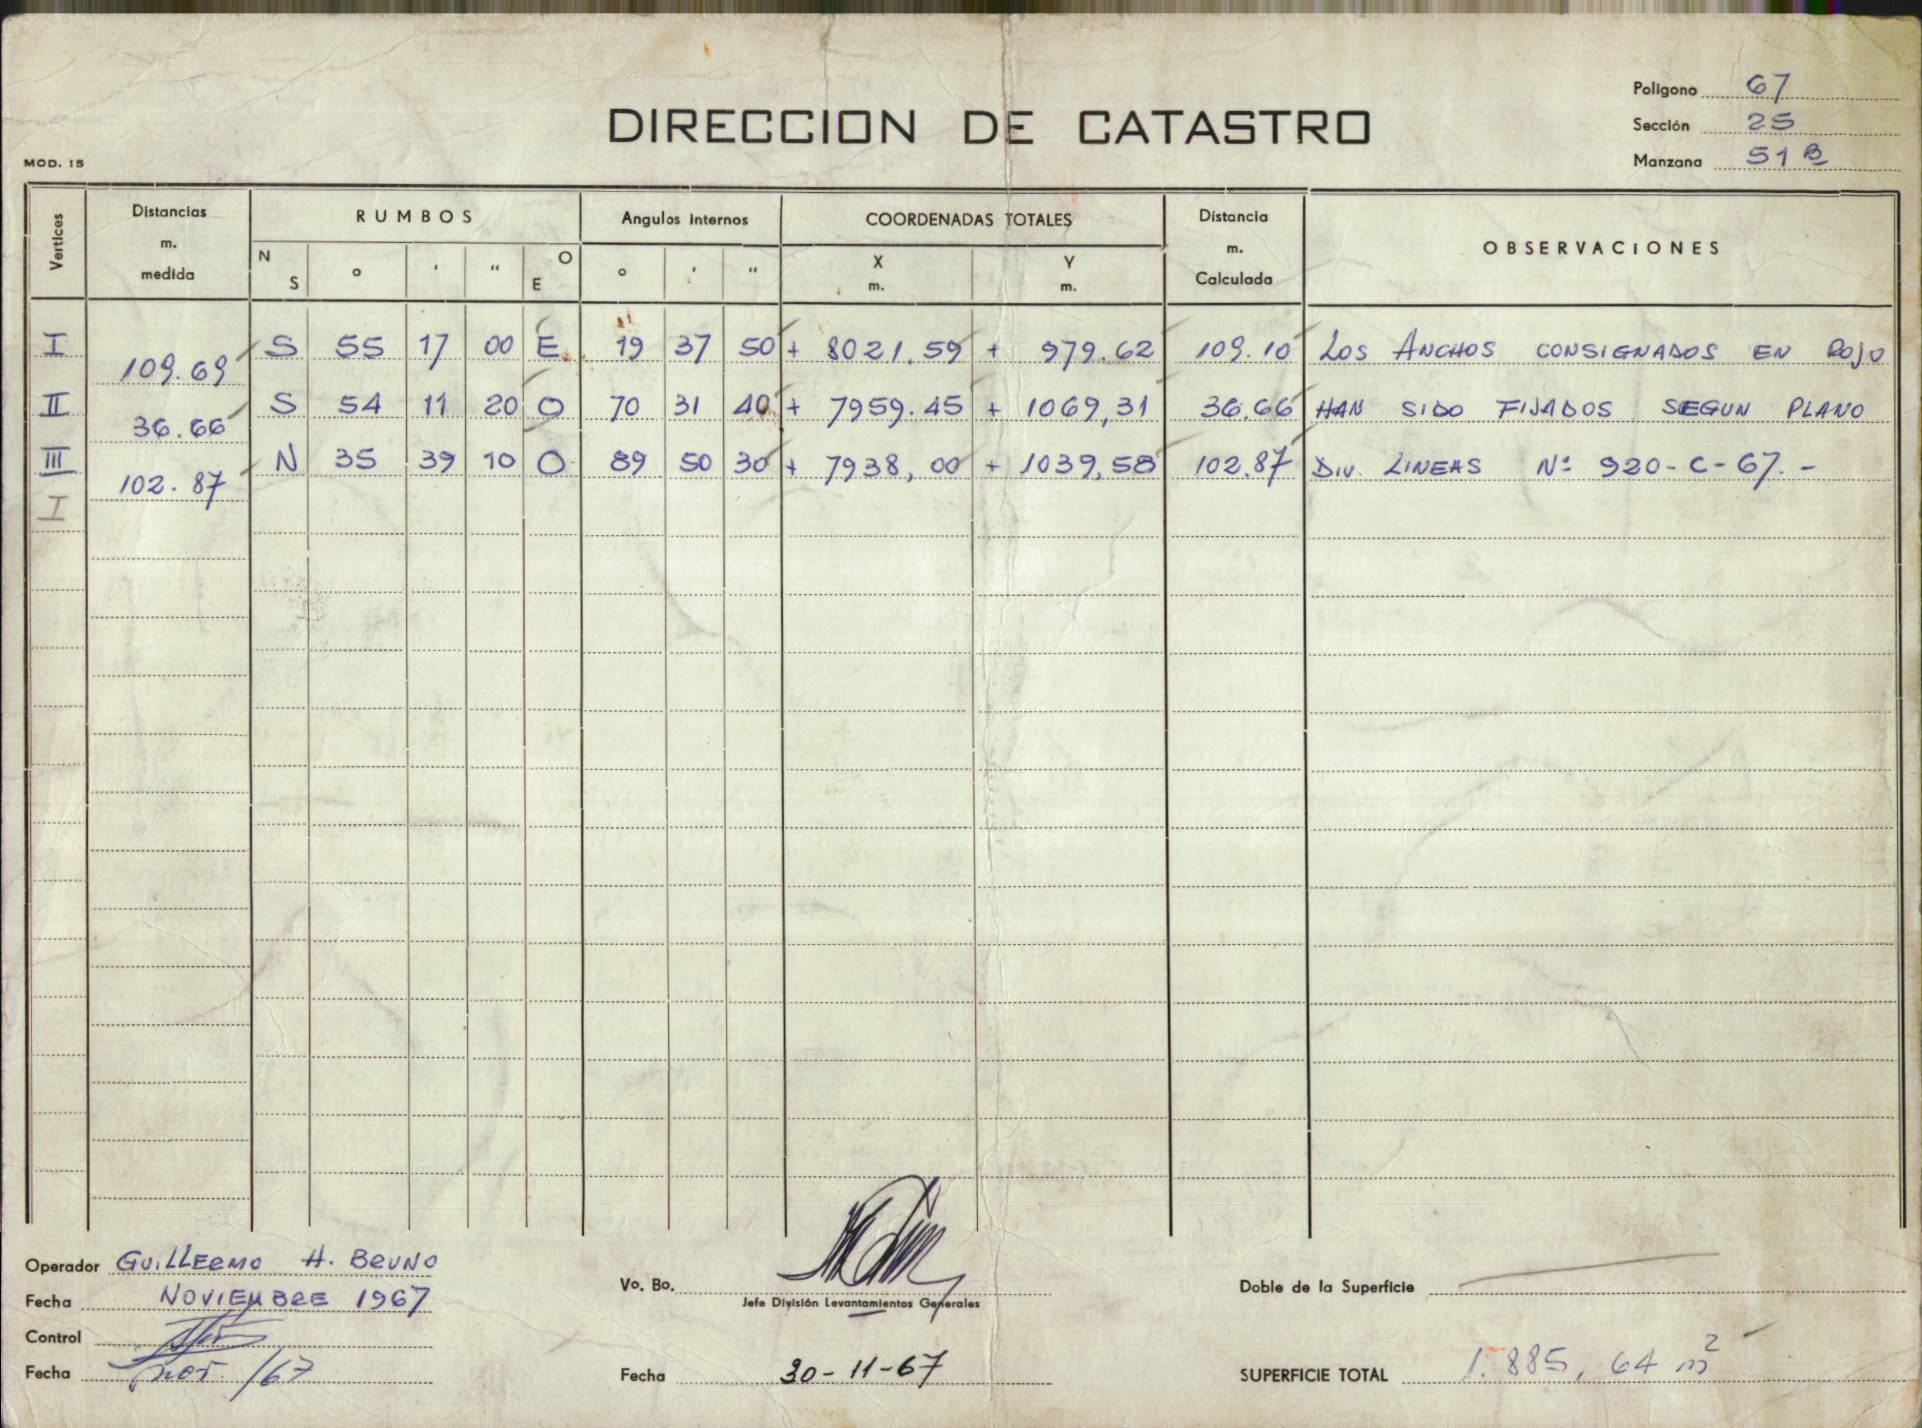 Poligono 67
DIRECCION DE CATASTRO
Sección 25
MOD. 15
Manzana 51 B
Vertices
Distancias m. medida
RUMBOS
Angulos internos
COORDENADAS TOTALES
Distancia m. Calculada
OBSERVACIONES
N S ° ' " O E ° ' " X m. Y m.
I S 55 17 00 E 19 37 50 + 8021.59 + 979.62 109.10 LOS ANCHOS CONSIGNADOS EN ROJO
109.69
II S 54 11 20 O 70 31 40 + 7959.45 + 1069,31 36.66 HAN SIDO FIJADOS SEGUN PLANO
36.66
III N 35 39 10 O 89 50 30 + 7938,00 + 1039,58 102.87 DIV. LINEAS Nº 920-C-67.-
102.87
I
Operador GUILLERMO H. BRUNO
Vo. Bo.
Doble de la Superficie
Fecha NOVIEMBRE 1967
Jefe División Levantamientos Generales
Control
Fecha nov. /67
Fecha 30-11-67
SUPERFICIE TOTAL 1.885,64 m²